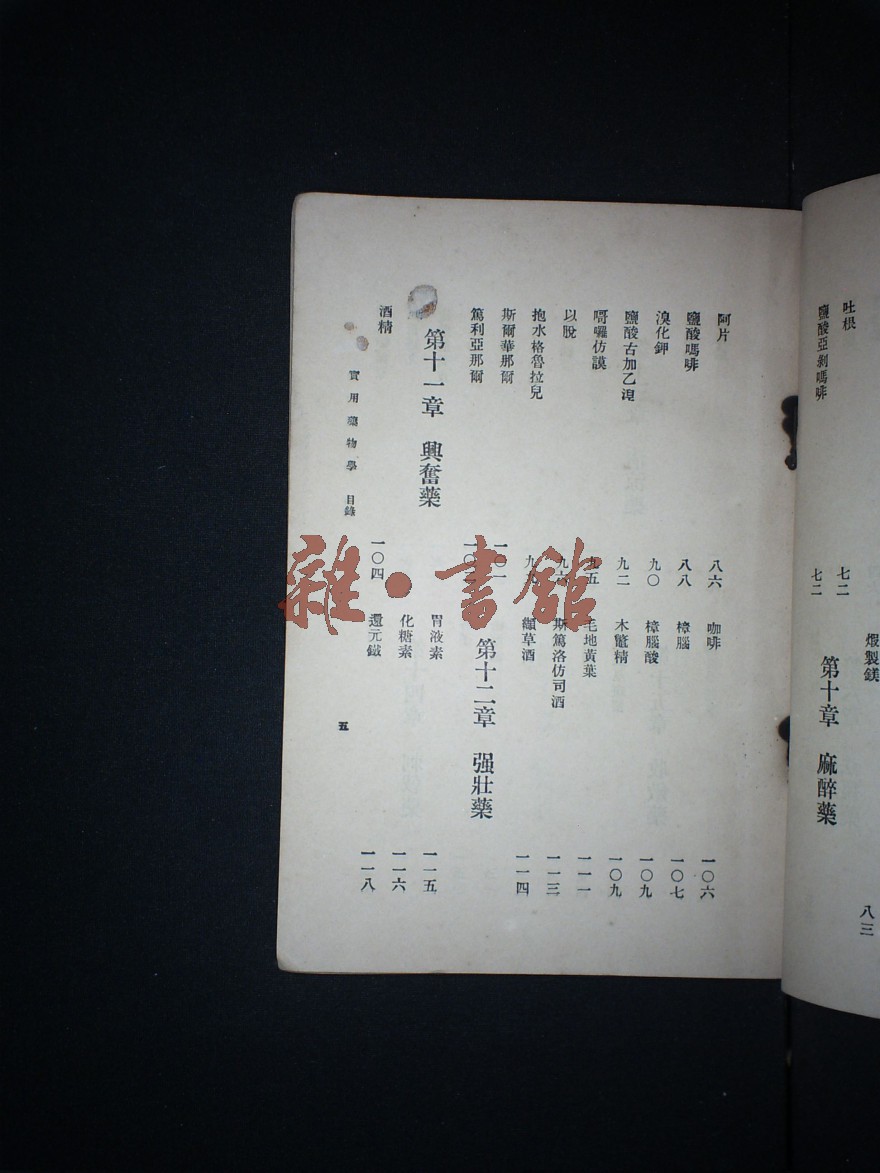 吐根 七二
鹽酸亞剝嗎啡 七二
煆製鎂 八三
第十章 麻醉藥
阿片 八六
鹽酸嗎啡 八八
溴化鉀 九〇
鹽酸古加乙涅 九二
哥囉仿謨 九五
以脫 九六
抱水格魯拉兒
斯爾華那爾 一〇一
篤利亞那爾
第十一章 興奮藥
酒精 一〇四
咖啡 一〇六
樟腦 一〇七
樟腦酸 一〇九
木鼈精 一〇九
毛地黃葉 一一一
斯篤洛仿司酒 一一三
纈草酒 一一四
第十二章 强壯藥
胃液素 一一五
化糖素 一一六
還元鐵 一一八
實用藥物學 目錄
五
雜·書館